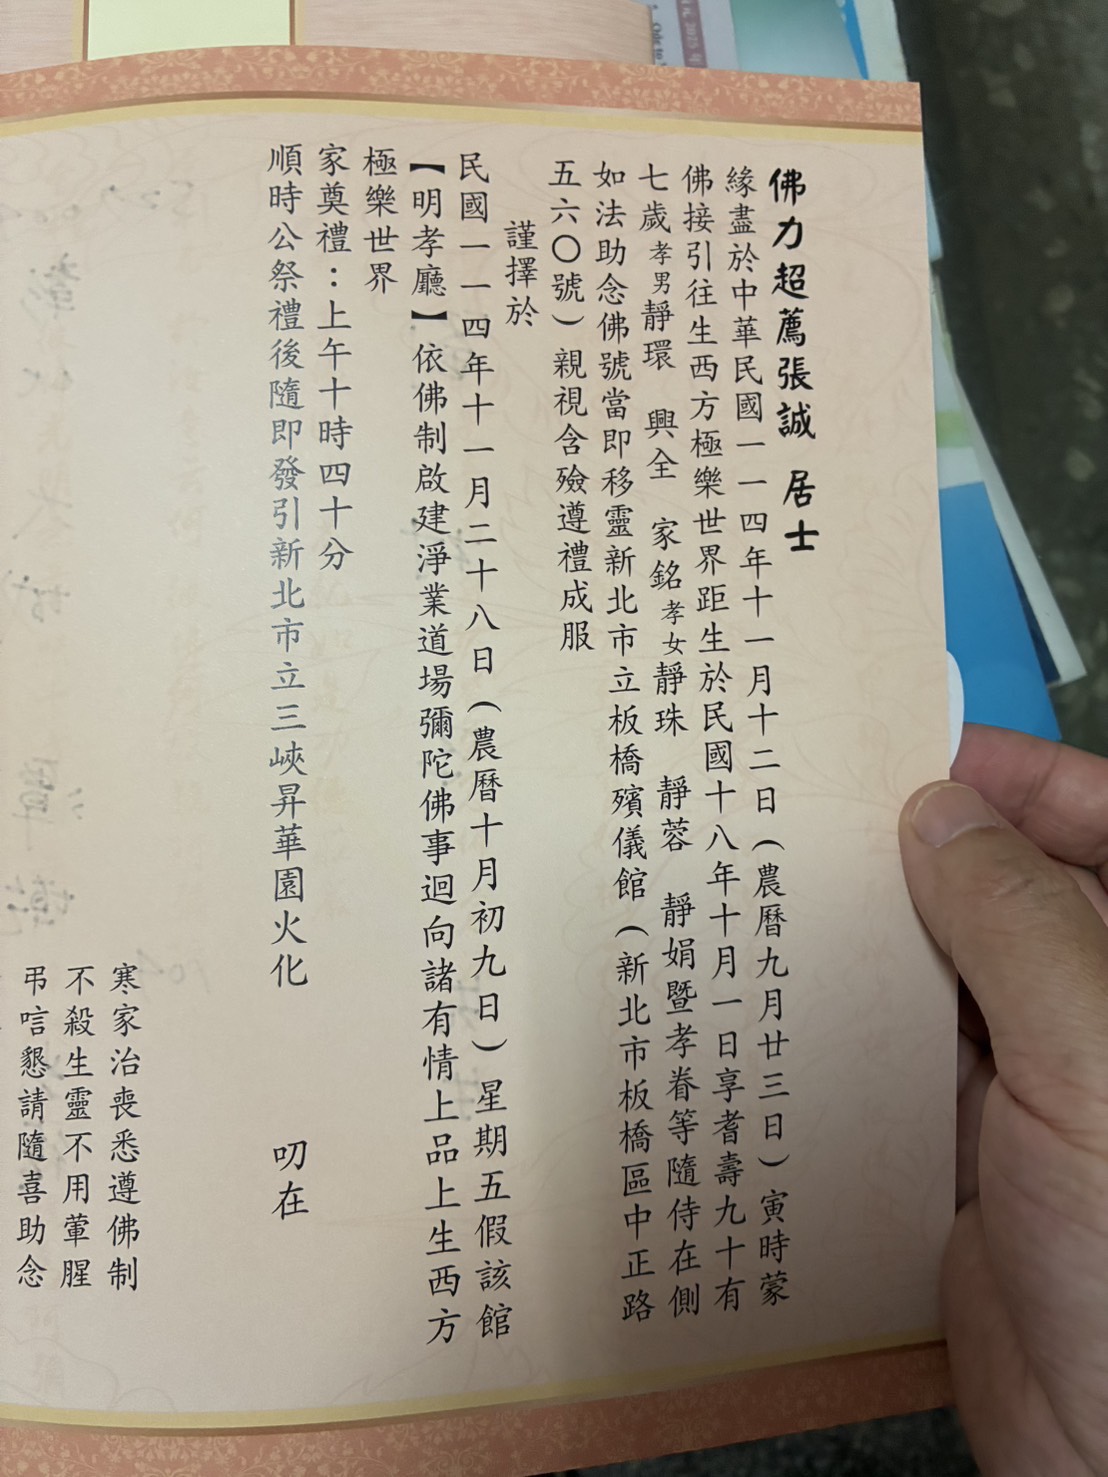 佛力超薦張誠 居士
緣盡於中華民國一一四年十一月十二日(農曆九月廿三日)寅時蒙
佛接引往生西方極樂世界距生於民國十八年十月一日享耆壽九十有
七歲孝男靜環 興全 家銘孝女靜珠 靜蓉 靜娟暨孝眷等隨侍在側
如法助念佛號當即移靈新北市立板橋殯儀館(新北市板橋區中正路
五六〇號)親視含殮遵禮成服
謹擇於
民國一一四年十一月二十八日(農曆十月初九日)星期五假該館
【明孝廳】依佛制啟建淨業道場彌陀佛事迴向諸有情上品上生西方
極樂世界
家奠禮:上午十時四十分
順時公祭禮後隨即發引新北市立三峽昇華園火化
叨在
寒家治喪悉遵佛制
不殺生靈不用葷腥
弔唁懇請隨喜助念